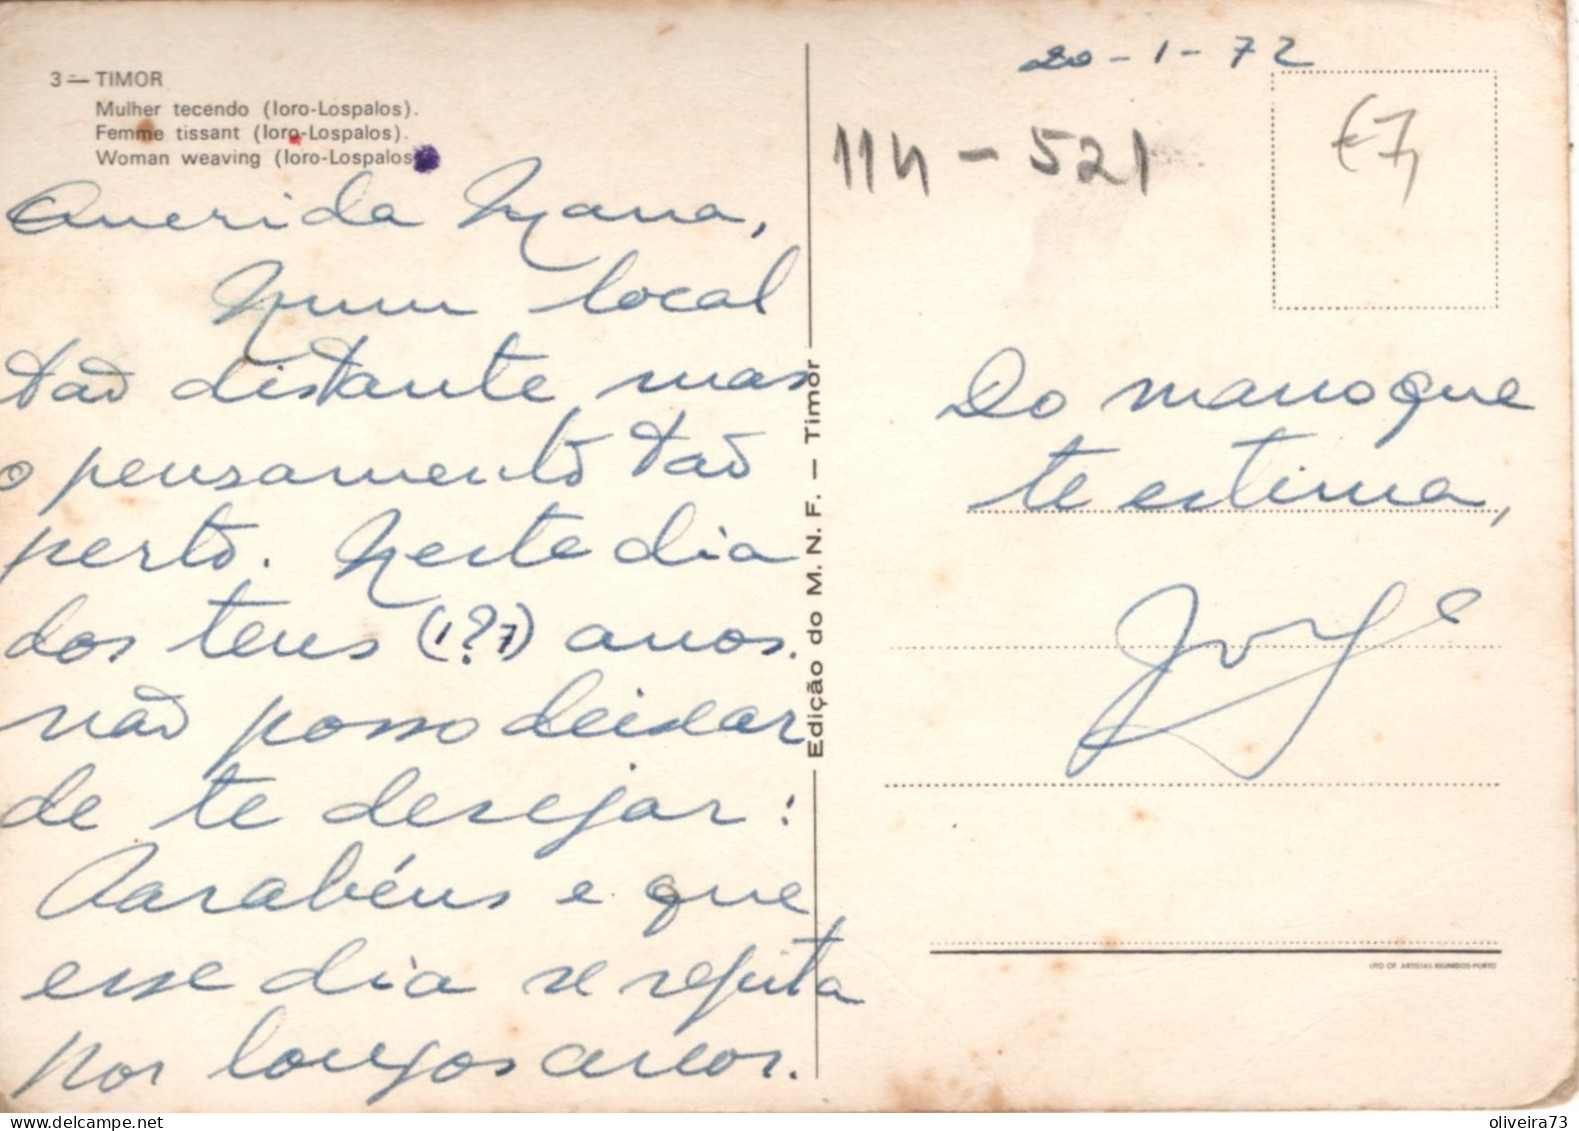 3 — TIMOR
Mulher tecendo (Ioro-Lospalos).
Femme tissant (Ioro-Lospalos).
Woman weaving (Ioro-Lospalos
Querida Mana,
Num local
tão distante mas
o pensamento tão
perto. Neste dia
dos teus (1?7) anos.
não posso deixar
de te desejar:
Parabéns e que
esse dia se repita
por longos anos.
Edição do M. N. F. — Timor
20-1-72
114-521
€7
Do mano que
te estima,
LITO OF. ARTISTAS REUNIDOS-PORTO
oliveira73